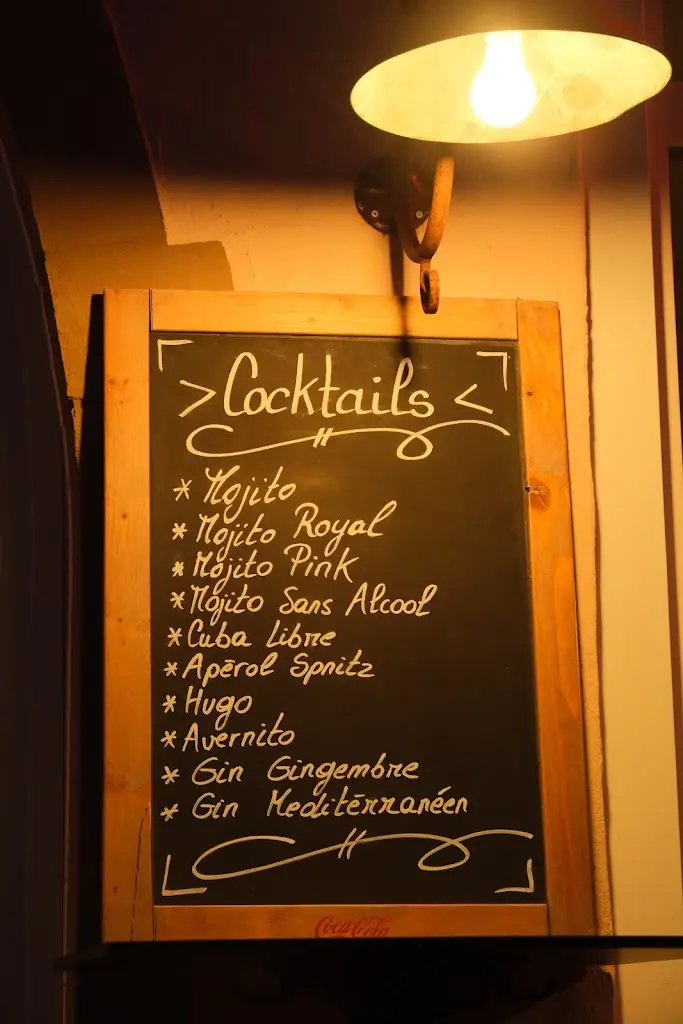 >Cocktails<
* Mojito
* Mojito Royal
* Mojito Pink
* Mojito Sans Alcool
* Cuba Libre
* Apérol Spritz
* Hugo
* Avernito
* Gin Gingembre
* Gin Méditérranéen
Coca-Cola